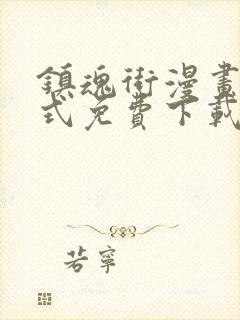 鎮魂街漫畫
式免費下載
若寧